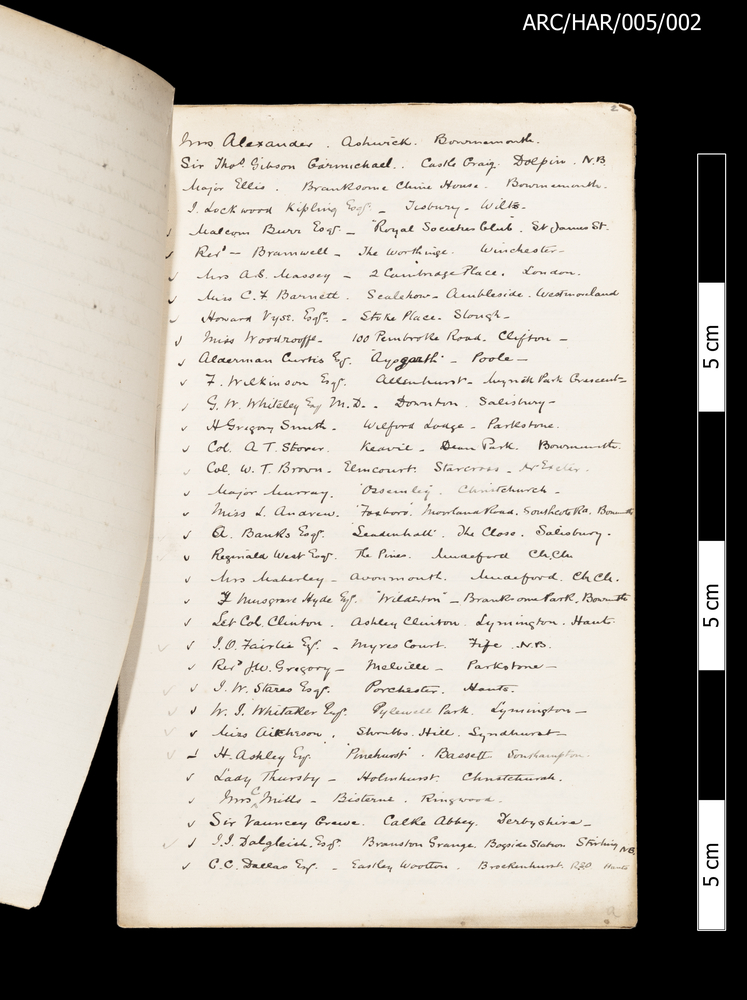 ARC/HAR/005/002
2
Mrs Alexander. Ashwick. Bournemouth.
Sir Thos. Gibson Carmichael. Castle Craig. Dolpin. N.B.
Major Ellis. Branksome Chine House. Bournemouth.
J. Lockwood Kipling Esq. - Tisbury - Wilts -
Malcom Burr Esq - Royal Societies Club. St James St.
Revd - Bramwell - The Worthings. Winchester -
Mrs A.C. Massey - 2 Cambridge Place. London.
Miss C. F Barnett. Scalehow - Ambleside. Westmorland
Howard Vyse. Esq. - Stoke Place. Slough -
Miss Woodrooffe - 100 Pembroke Road. Clifton -
Alderman Curtis Esq. "Aysgarth" - Poole -
F. Wilkinson Esq. Allenhurst - Meyrick Park Crescent -
G. W. Whiteley Esq M.D. - Downton. Salisbury -
H Gregory Smith - Wilford Lodge - Parkstone.
Col. A. T. Storer. Keavil - Dean Park. Bournemouth.
Col. W. T. Brown - Elmcourt. Starcross - Nr Exeter.
Major Murray. "Ossemley". Christchurch -
Miss L. Andrew. "Foxboro". Moorland Road. Southcote Rd. Bournmth
A. Banks Esq. "Leadenhall". The Close. Salisbury.
Reginald West Esq. The Pines. Mudeford Ch.Ch.
Mrs Maberley - Avonmouth. Mudeford. Ch Ch.
F Musgrave Hyde Esq. "Wilderton" - Branksome Park. Bournmth
Lt Col. Clinton. Ashley Clinton. Lymington. Hants.
J. O. Fairlie Esq. - Myres Court. Fife. N.B.
Revd J.W. Gregory - Melville - Parkstone -
J. W. Stares Esq. Porchester. Hants.
W. I. Whitaker Esq. Pylewell Park. Lymington -
Miss Aitcheson. Shrubbs Hill. Lyndhurst -
H. Ashley Esq. "Pinehurst". Bassett Southampton.
Lady Thursby - Holmhurst. Christchurch.
Mrs C Mills - Bisterne. Ringwood.
Sir Vauncey Crewe. Calke Abbey. Derbyshire -
J.J. Dalgleish. Esq. Branston Grange. Bogside Station Stirling N.B.
C.C. Dallas Esq. - Eastley Wootton. Brockenhurst RSO Hants
5 cm
5 cm
5 cm